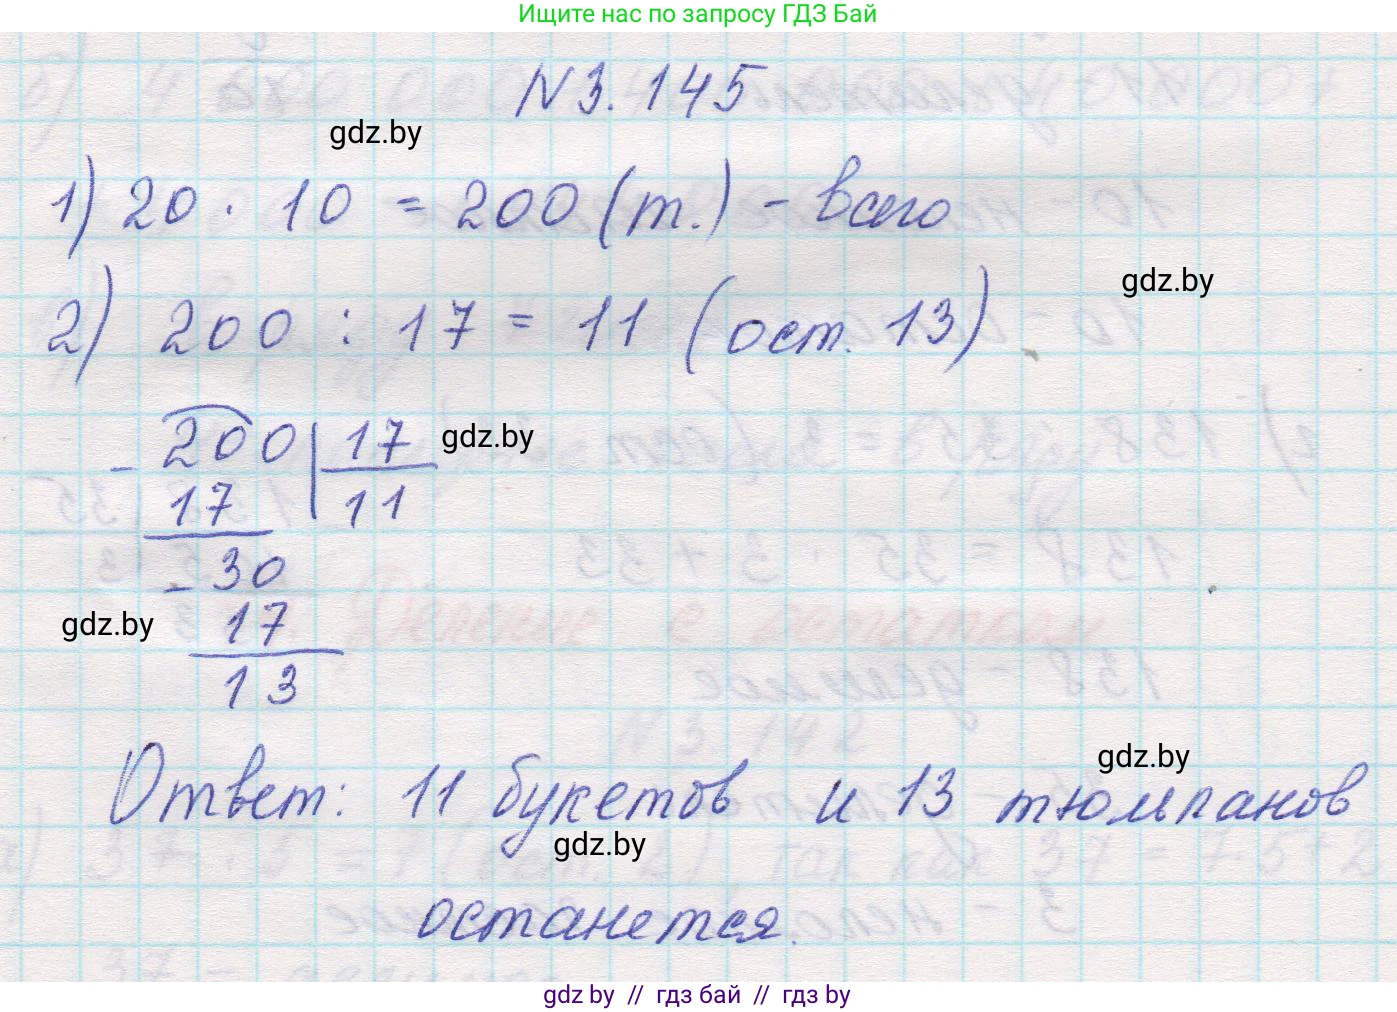 Ищите нас по запросу ГДЗ Бай
N3.145
gdz.by
1) 20 · 10 = 200 (т.) - всего
gdz.by
2) 200 : 17 = 11 (ост. 13)
- 200 | 17
gdz.by
17 11
- 30
gdz.by
17
13
gdz.by
Ответ: 11 букетов и 13 тюльпанов
gdz.by
останется.
gdz by // гдз бай // гдз by